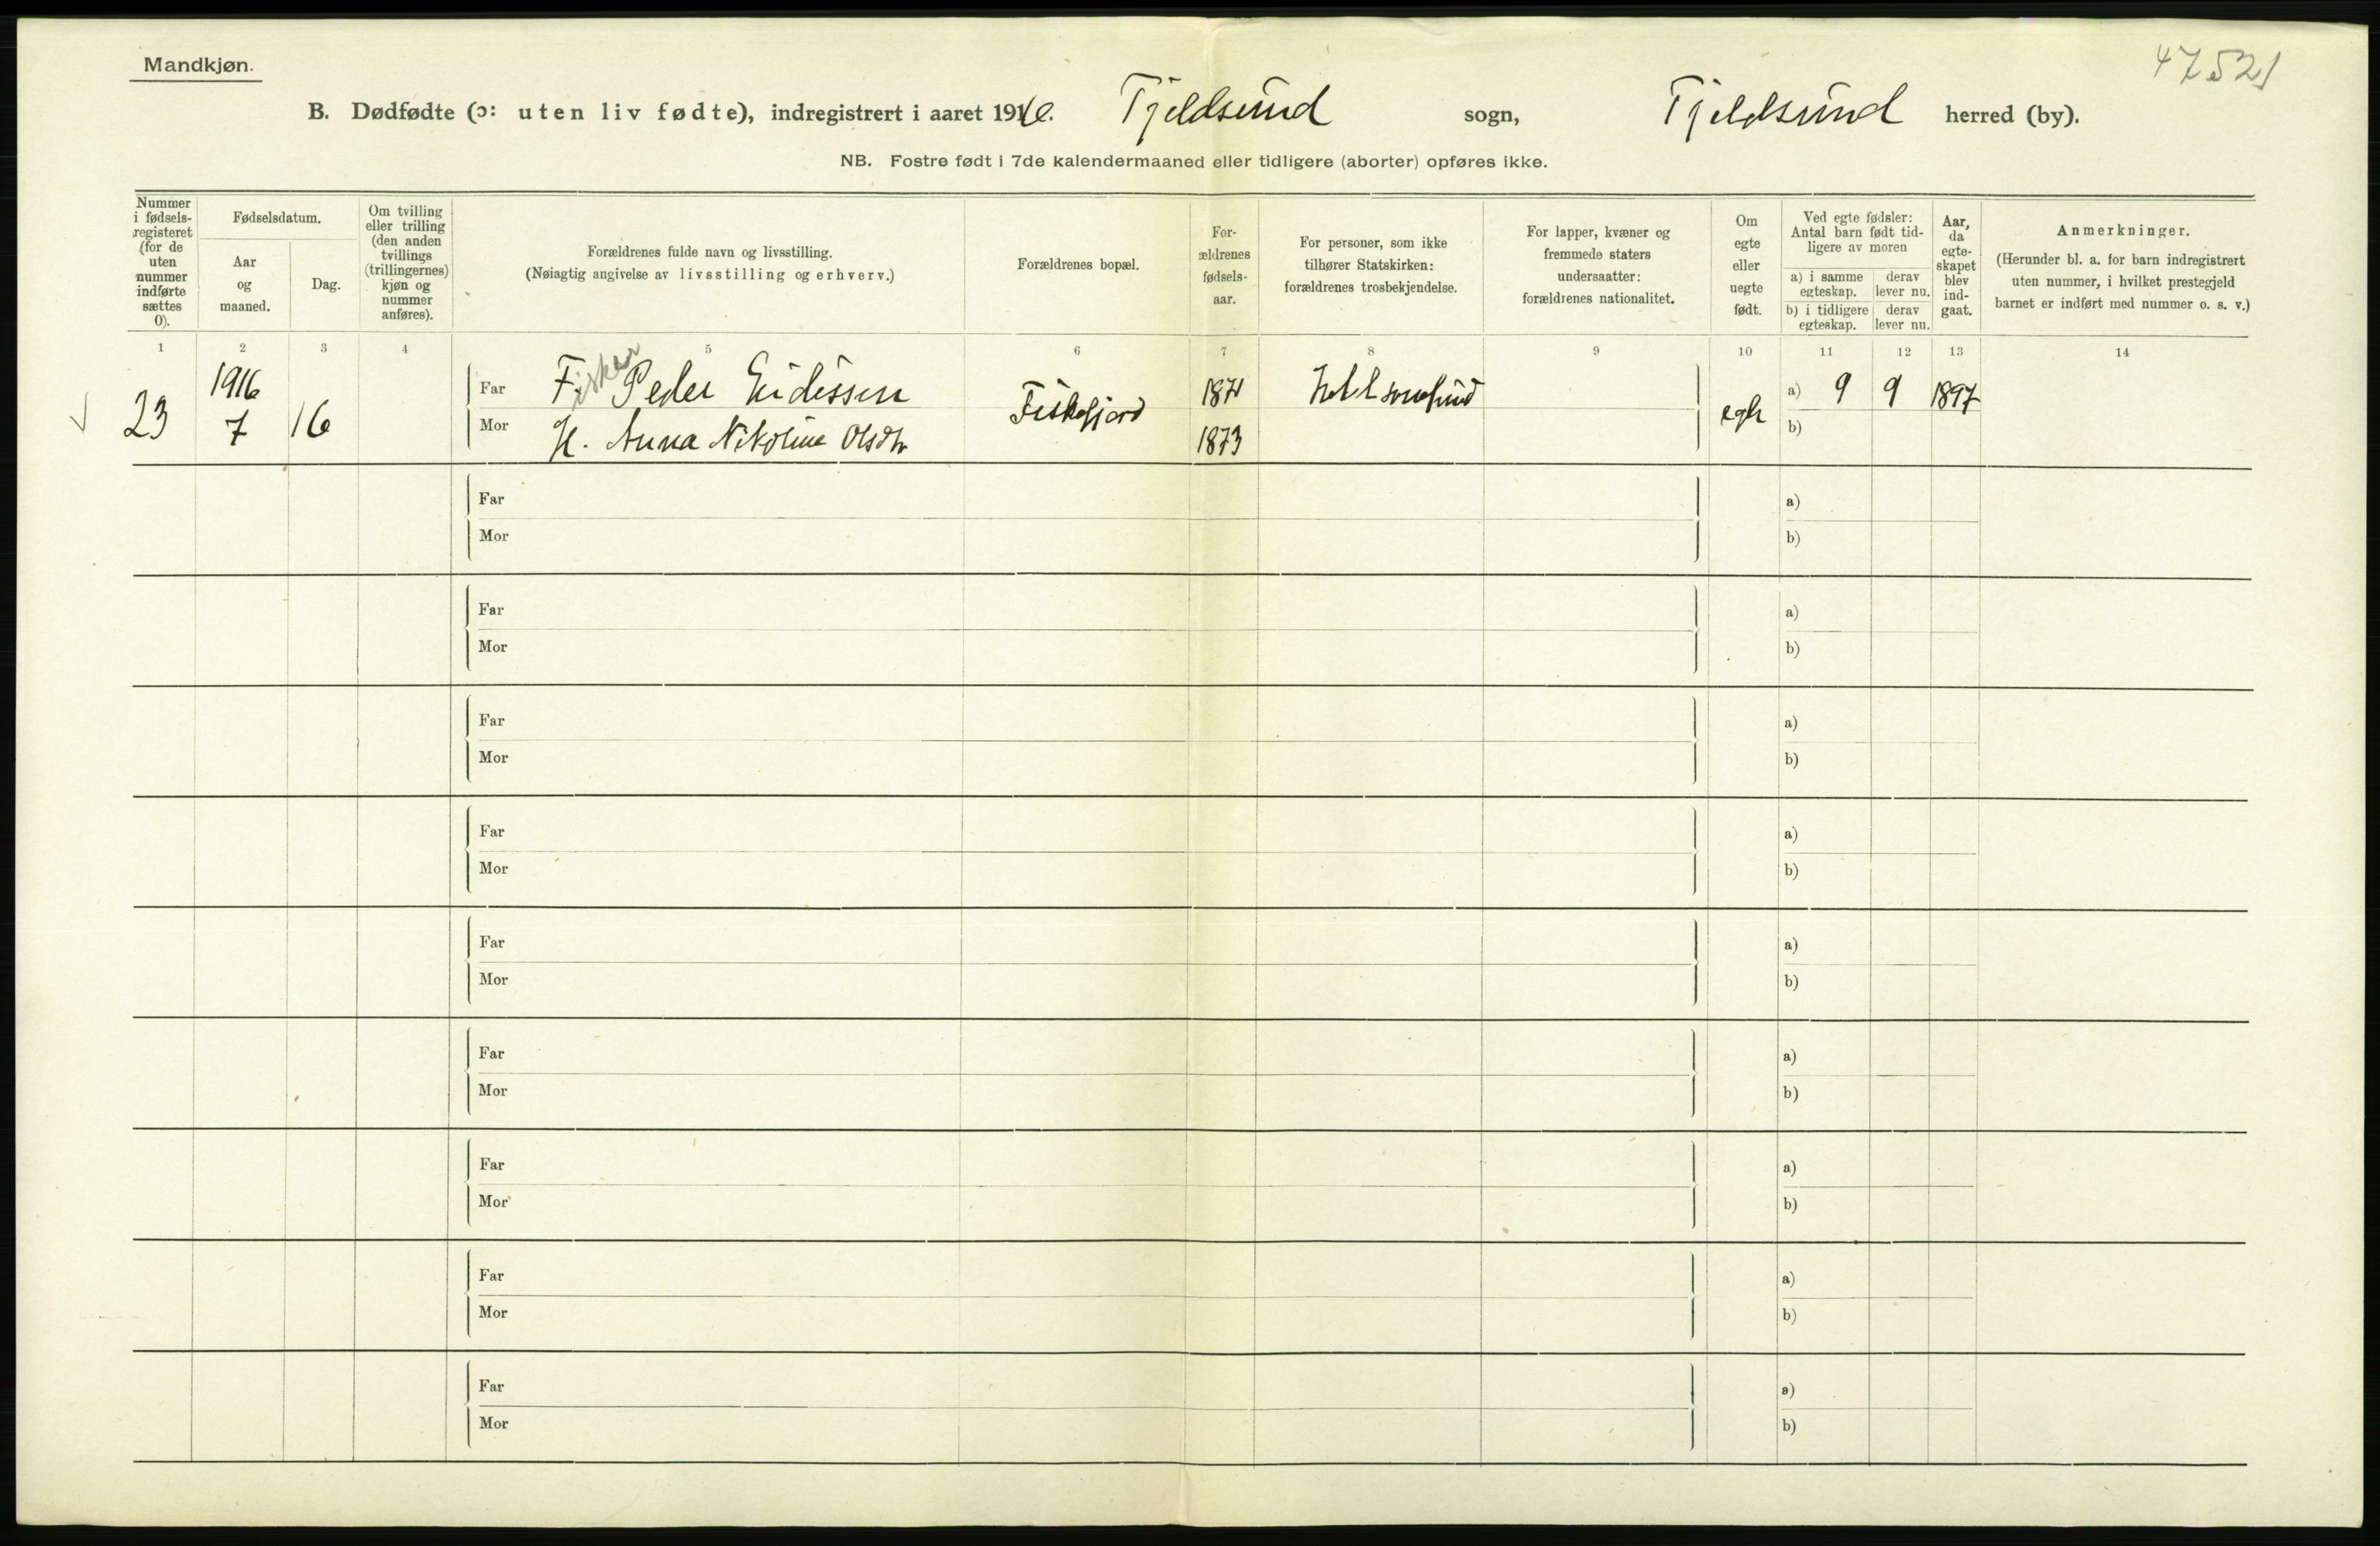 Mandkjøn.
47521
B. Dødfødte (ɔ: uten liv fødte), indregistrert i aaret 1916. Tjeldsund sogn, Tjeldsund herred (by).
NB. Fostre født i 7de kalendermaaned eller tidligere (aborter) opføres ikke.
Nummer i fødsels-registeret (for de uten nummer indførte sættes 0).
Fødselsdatum.
Aar og maaned.
Dag.
Om tvilling eller trilling (den anden tvillings (trillingernes) kjøn og nummer anføres).
Forældrenes fulde navn og livsstilling.
(Nøiagtig angivelse av livsstilling og erhverv.)
Forældrenes bopæl.
For-ældrenes fødsels-aar.
For personer, som ikke tilhører Statskirken: forældrenes trosbekjendelse.
For lapper, kvæner og fremmede staters undersaatter: forældrenes nationalitet.
Om egte eller uegte født.
Ved egte fødsler: Antal barn født tid-ligere av moren
a) i samme egteskap.
derav lever nu.
b) i tidligere egteskap.
derav lever nu.
Aar, da egte-skapet blev ind-gaat.
Anmerkninger.
(Herunder bl. a. for barn indregistrert uten nummer, i hvilket prestegjeld barnet er indført med nummer o. s. v.)
1 2 3 4 5 6 7 8 9 10 11 12 13 14
23 1916 7 16
Far Fisker Peder Eidissen Fiskefjord 1871 egte a) 9 9 1897
Mor H. Anna Nikoline Olsdtr 1873 b)
Far a)
Mor b)
Far a)
Mor b)
Far a)
Mor b)
Far a)
Mor b)
Far a)
Mor b)
Far a)
Mor b)
Far a)
Mor b)
Far a)
Mor b)
Far a)
Mor b)